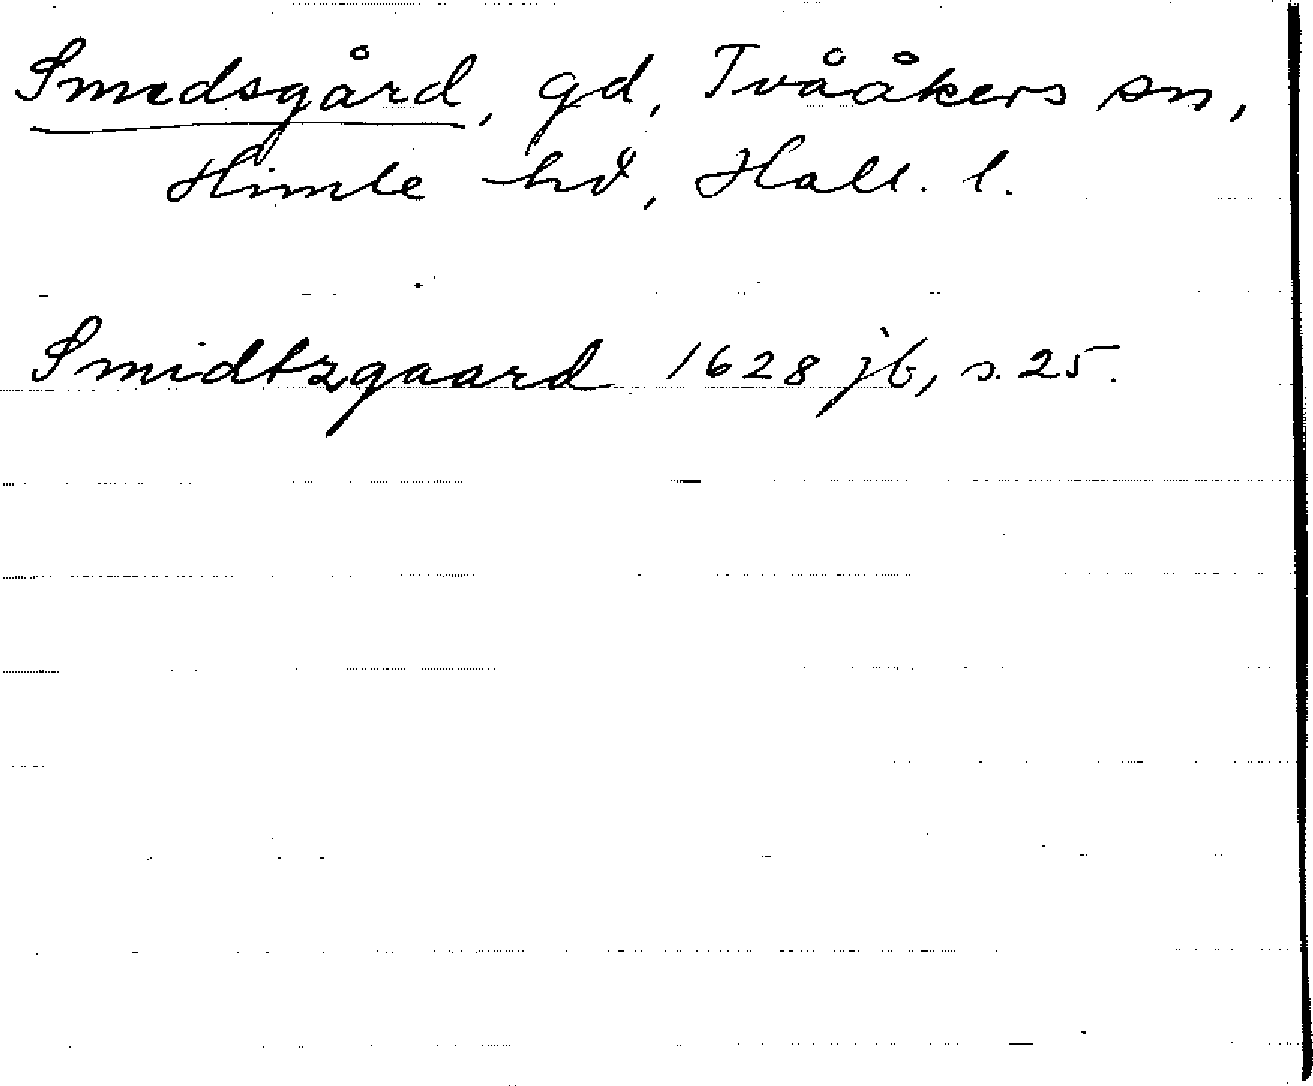 Smedsgård, gd, Tvååkers sn,
Himle hd, Hall. l.
Smidtzgaard 1628 jb, s. 25.